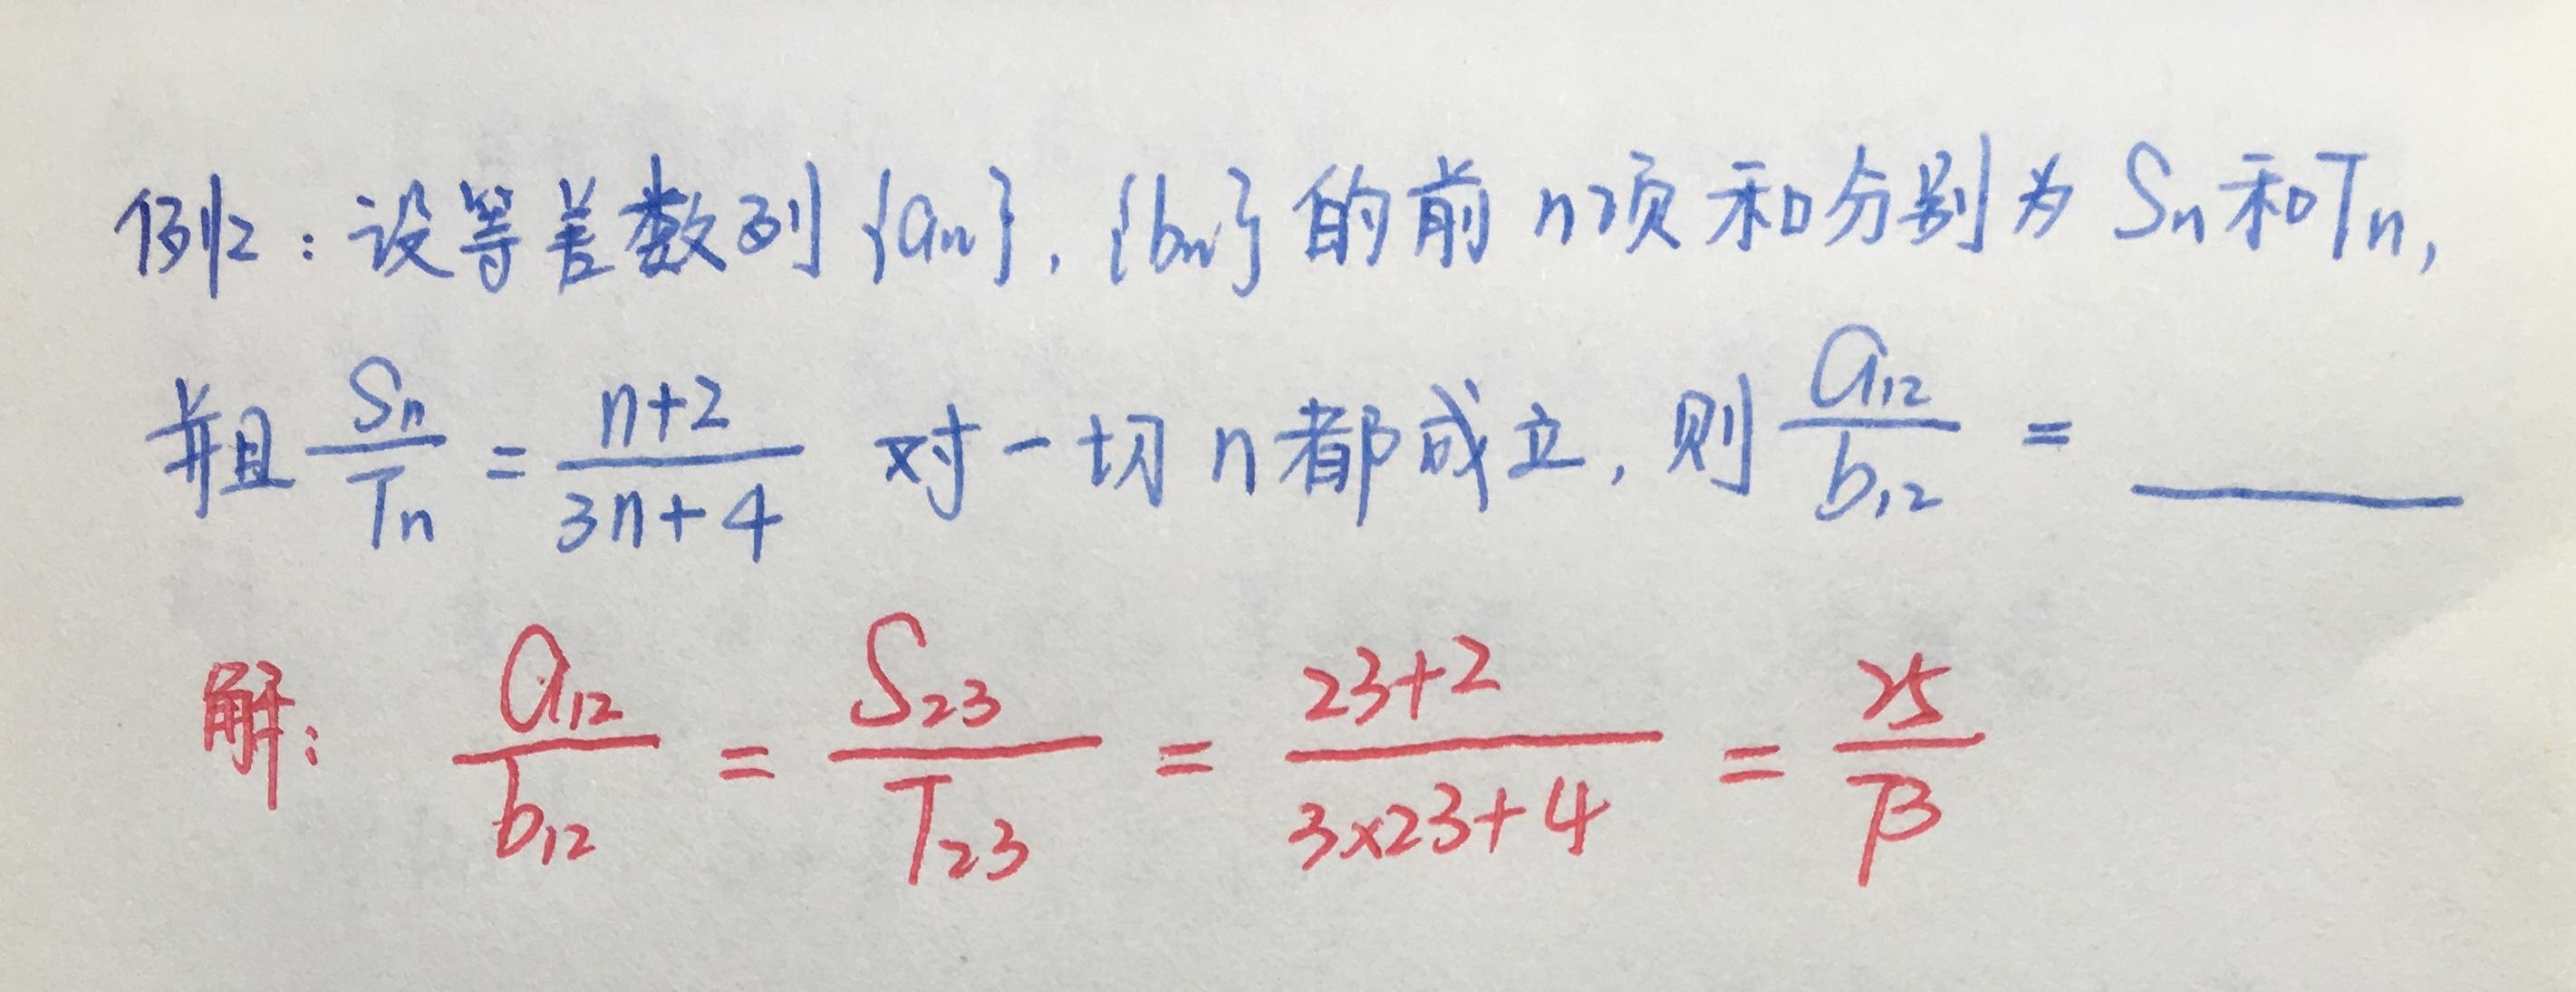 例2：设等差数列{aₙ}，{bₙ}的前n项和分别为Sₙ和Tₙ，
并且 Sₙ/Tₙ = (n+2)/(3n+4) 对一切n都成立，则 a₁₂/b₁₂ = ____
解： a₁₂/b₁₂ = S₂₃/T₂₃ = (23+2)/(3×23+4) = 25/73